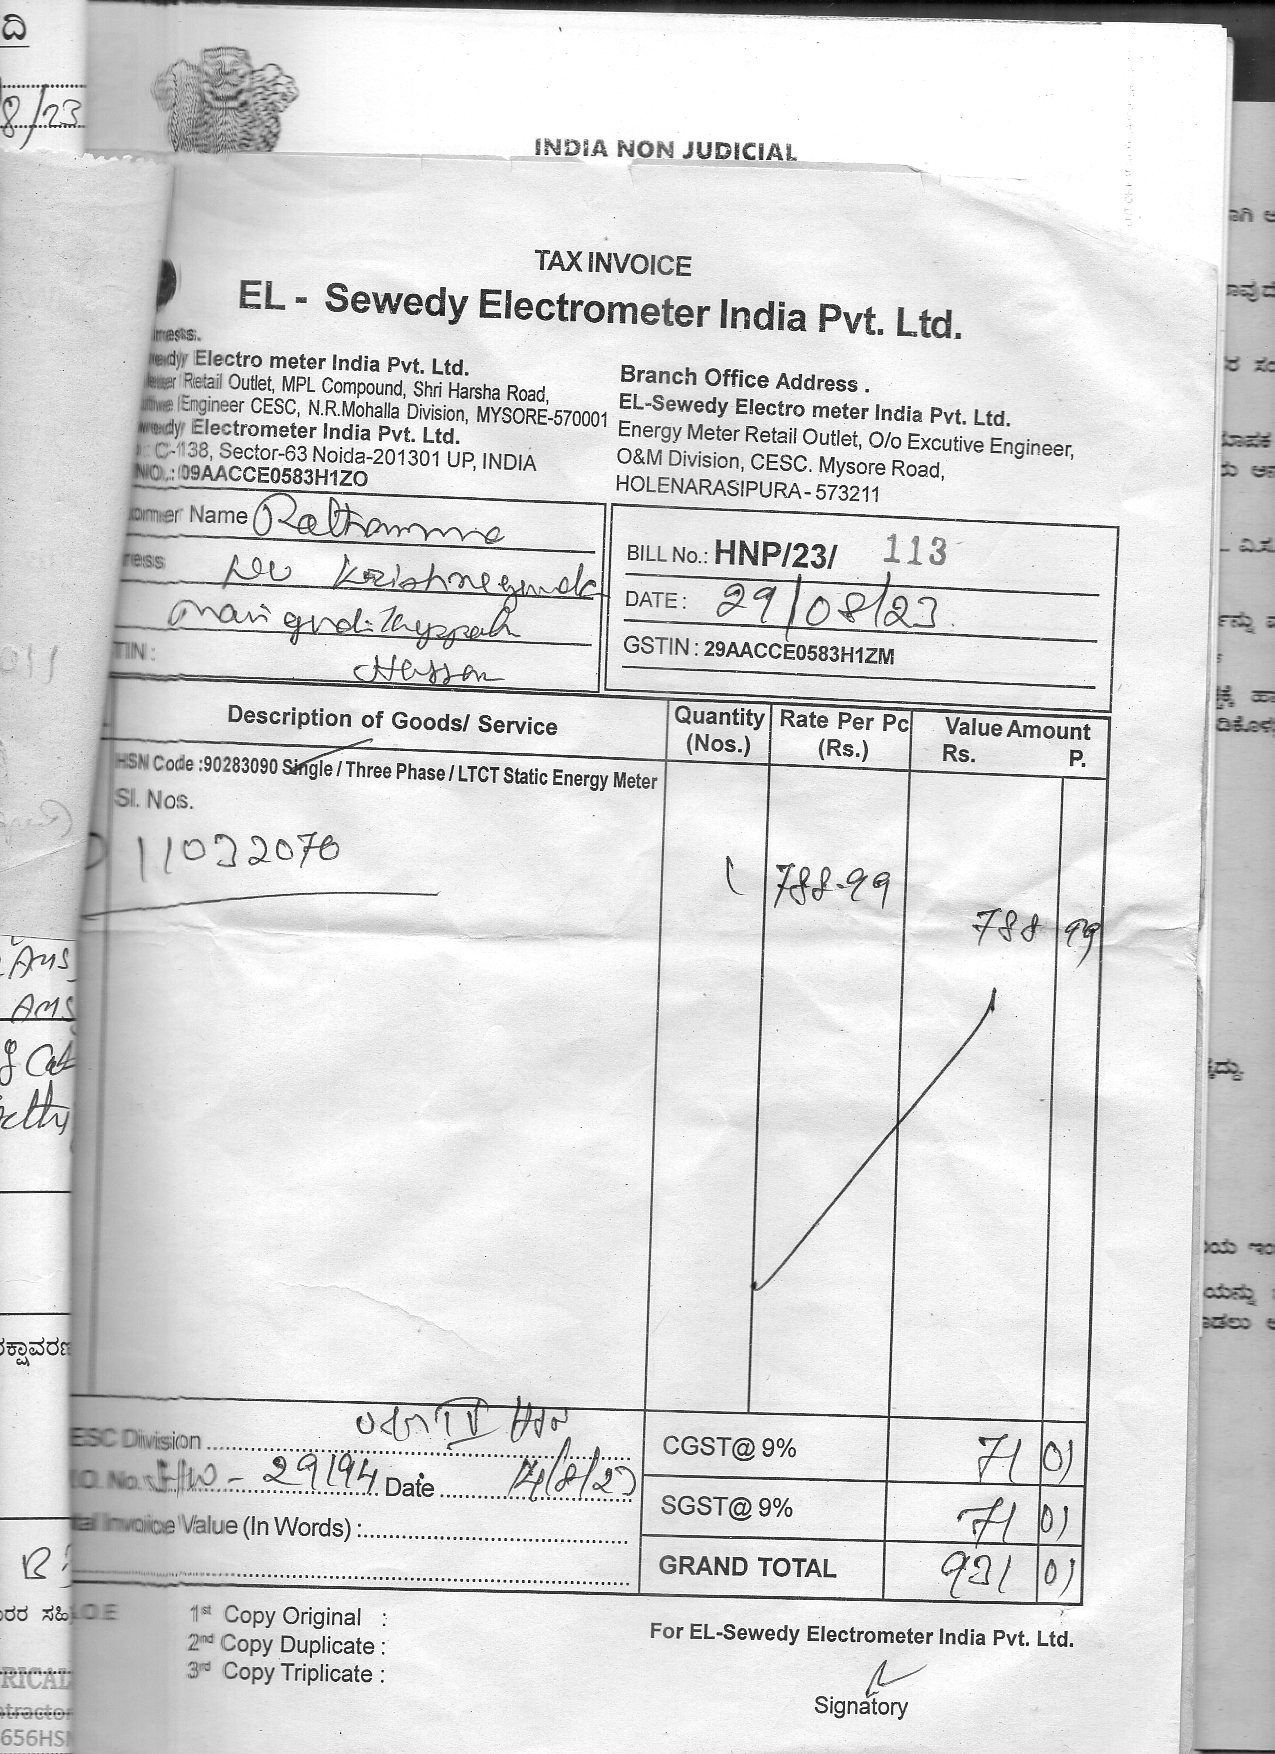 ದಿ
8/23
INDIA NON JUDICIAL
TAX INVOICE
EL - Sewedy Electrometer India Pvt. Ltd.
Electro meter India Pvt. Ltd.
Retail Outlet, MPL Compound, Shri Harsha Road,
Engineer CESC, N.R.Mohalla Division, MYSORE-570001
Electrometer India Pvt. Ltd.
C-138, Sector-63 Noida-201301 UP, INDIA
NO.: 09AACCE0583H1ZO
Branch Office Address .
EL-Sewedy Electro meter India Pvt. Ltd.
Energy Meter Retail Outlet, O/o Excutive Engineer,
O&M Division, CESC. Mysore Road,
HOLENARASIPURA - 573211
omer Name Rathamma
ress
TIN : Hassan
BILL No.: HNP/23/ 113
DATE : 29/08/23
GSTIN : 29AACCE0583H1ZM
Description of Goods/ Service
Quantity (Nos.)
Rate Per Pc (Rs.)
Value Amount
Rs. P.
HSN Code :90283090 Single / Three Phase / LTCT Static Energy Meter
Sl. Nos.
11032070
1 788-99
788 99
AMS
AMS
ESC Division
O. No. 29194 Date 14/8/23
tal Invoice Value (In Words) :
CGST@ 9% 71 01
SGST@ 9% 71 01
GRAND TOTAL 931 01
1st Copy Original :
2nd Copy Duplicate :
3rd Copy Triplicate :
For EL-Sewedy Electrometer India Pvt. Ltd.
Signatory
RICAL
ntractor
656HS